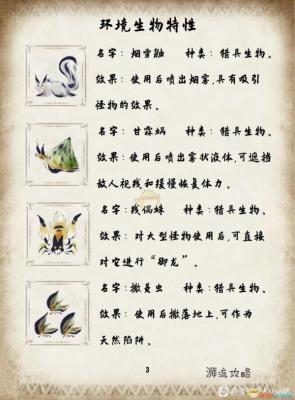 环境生物特性
名字：烟雪鼬 种类：猎具生物。
效果：使用后喷出烟雾，具有吸引
怪物的效果。
名字：甘霖蜗 种类：猎具生物。
效果：使用后喷出雾状液体，可遮挡
敌人视线和缓慢恢复体力。
名字：线傀蛛 种类：猎具生物。
效果：对大型怪物使用后，可直接
对它进行“御龙”。
名字：撒菱虫 种类：猎具生物。
效果：使用后撒落地上，可作为
天然陷阱。
3
狮流攻略